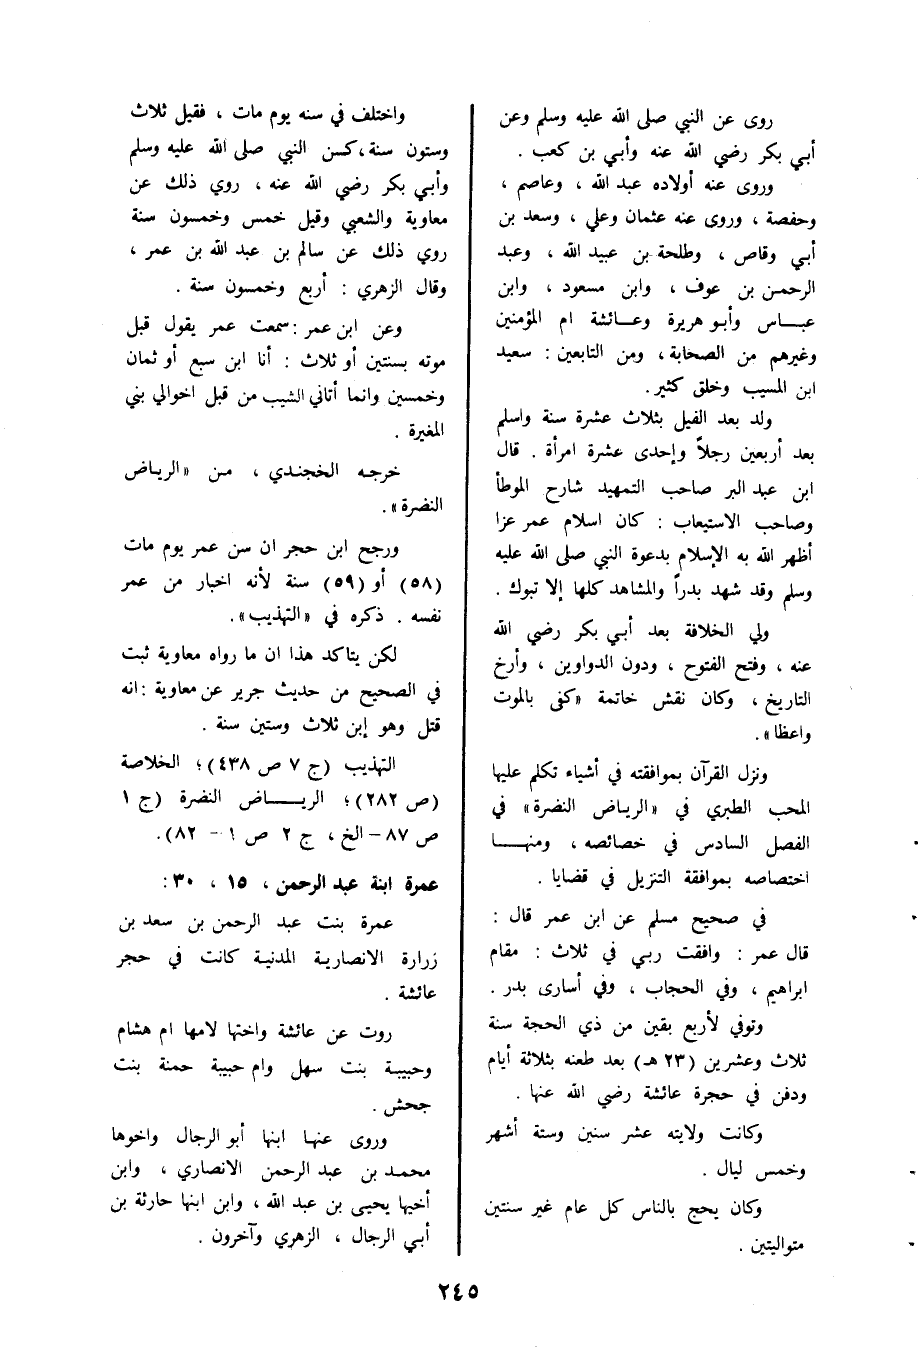 روى عن النبي صلى الله عليه وسلم وعن
أبي بكر رضي الله عنه وأبي بن كعب .
وروى عنه أولاده عبد الله ، وعاصم ،
وحفصة ، وروى عنه عثمان وعلي ، وسعد بن
أبي وقاص ، وطلحة بن عبيد الله ، وعبد
الرحمن بن عوف ، وابن مسعود ، وابن
عباس وأبو هريرة وعائشة ام المؤمنين
وغيرهم من الصحابة ، ومن التابعين : سعيد
ابن المسيب وخلق كثير .
ولد بعد الفيل بثلاث عشرة سنة واسلم
بعد أربعين رجلاً وإحدى عشرة امرأة . قال
ابن عبد البر صاحب التمهيد شارح الموطأ
وصاحب الاستيعاب : كان اسلام عمر عزا
أظهر الله به الإسلام بدعوة النبي صلى الله عليه
وسلم وقد شهد بدراً والمشاهد كلها إلا تبوك .
ولي الخلافة بعد أبي بكر رضي الله
عنه ، وفتح الفتوح ، ودون الدواوين ، وأرخ
التاريخ ، وكان نقش خاتمة «كفى بالموت
واعظا» .
ونزل القرآن بموافقته في أشياء تكلم عليها
المحب الطبري في «الرياض النضرة» في
الفصل السادس في خصائصه ، ومنها
اختصاصه بموافقة التنزيل في قضايا .
في صحيح مسلم عن ابن عمر قال :
قال عمر : وافقت ربي في ثلاث : مقام
ابراهيم ، وفي الحجاب ، وفي أسارى بدر .
وتوفي لأربع بقين من ذي الحجة سنة
ثلاث وعشرين (٢٣ هـ) بعد طعنه بثلاثة أيام
ودفن في حجرة عائشة رضي الله عنها .
وكانت ولايته عشر سنين وستة أشهر
وخمس ليال .
وكان يحج بالناس كل عام غير سنتين
متواليتين .
واختلف في سنه يوم مات ، فقيل ثلاث
وستون سنة ، كسن النبي صلى الله عليه وسلم
وأبي بكر رضي الله عنه ، روي ذلك عن
معاوية والشعبي وقيل خمس وخمسون سنة
روي ذلك عن سالم بن عبد الله بن عمر ،
وقال الزهري : أربع وخمسون سنة .
وعن ابن عمر : سمعت عمر يقول قبل
موته بسنتين أو ثلاث : أنا ابن سبع أو ثمان
وخمسين وانما أتاني الشيب من قبل اخوالي بني
المغيرة .
خرجه الخجندي ، من «الرياض
النضرة» .
ورجح ابن حجر ان سن عمر يوم مات
(٥٨) أو (٥٩) سنة لأنه اخبار من عمر
نفسه . ذكره في «التهذيب» .
لكن يتاكد هذا ان ما رواه معاوية ثبت
في الصحيح من حديث جرير عن معاوية : انه
قتل وهو إبن ثلاث وستين سنة .
التهذيب (ج ٧ ص ٤٣٨) ؛ الخلاصة
(ص ٢٨٢) ؛ الرياض النضرة (ج ١
ص ٨٧ – الخ ، ج ٢ ص ١ - ٨٢) .
عمرة ابنة عبد الرحمن ، ١٥ ، ٣٠ :
عمرة بنت عبد الرحمن بن سعد بن
زرارة الانصارية المدنية كانت في حجر
عائشة .
روت عن عائشة واختها لامها ام هشام
وحبيبة بنت سهل وام حبيبة حمنة بنت
جحش .
وروى عنها ابنها أبو الرجال واخوها
محمد بن عبد الرحمن الانصاري ، وابن
أخيها يحيى بن عبد الله ، وابن ابنها حارثة بن
أبي الرجال ، الزهري وآخرون .
٢٤٥